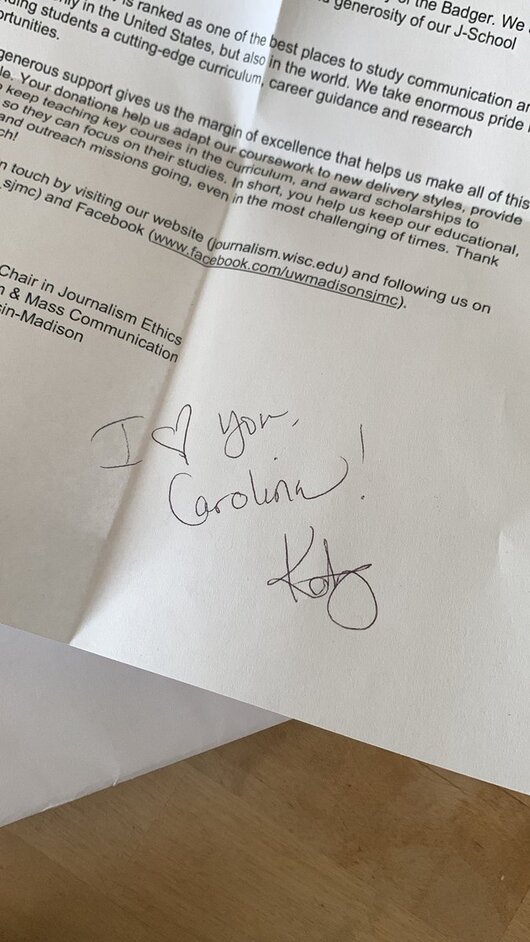 of the Badger. We
generosity of our J-School
is ranked as one of the best places to study communication
in the United States, but also in the world. We take enormous pride
students a cutting-edge curriculum, career guidance and research
generous support gives us the margin of excellence that helps us make all of this
Your donations help us adapt our coursework to new delivery styles, provide
keep teaching key courses in the curriculum, and award scholarships to
so they can focus on their studies. In short, you help us keep our educational,
and outreach missions going, even in the most challenging of times. Thank
touch by visiting our website (journalism.wisc.edu) and following us on
sjmc) and Facebook (www.facebook.com/uwmadisonsjmc).
Chair in Journalism Ethics
& Mass Communication
-Madison
I ♡ you,
Carolina!